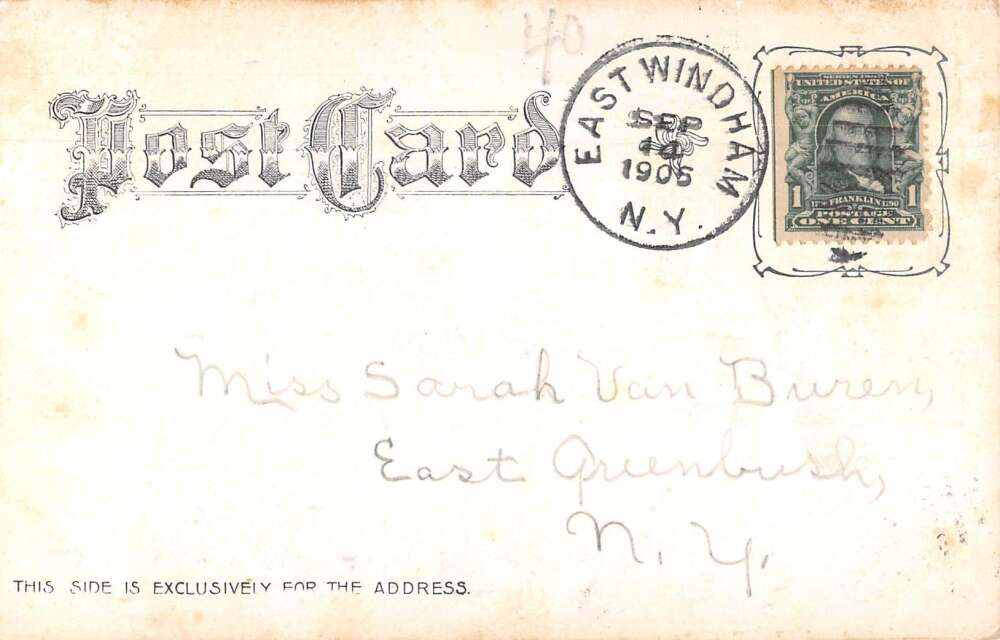 40
Post Card
EAST WINDHAM
SEP
14
1905
N.Y.
SERIES 1902
UNITED STATES OF
AMERICA
1 1
FRANKLIN
POSTAGE
ONE CENT
Miss Sarah Van Buren,
East Greenbush,
N. Y.
THIS SIDE IS EXCLUSIVELY FOR THE ADDRESS.